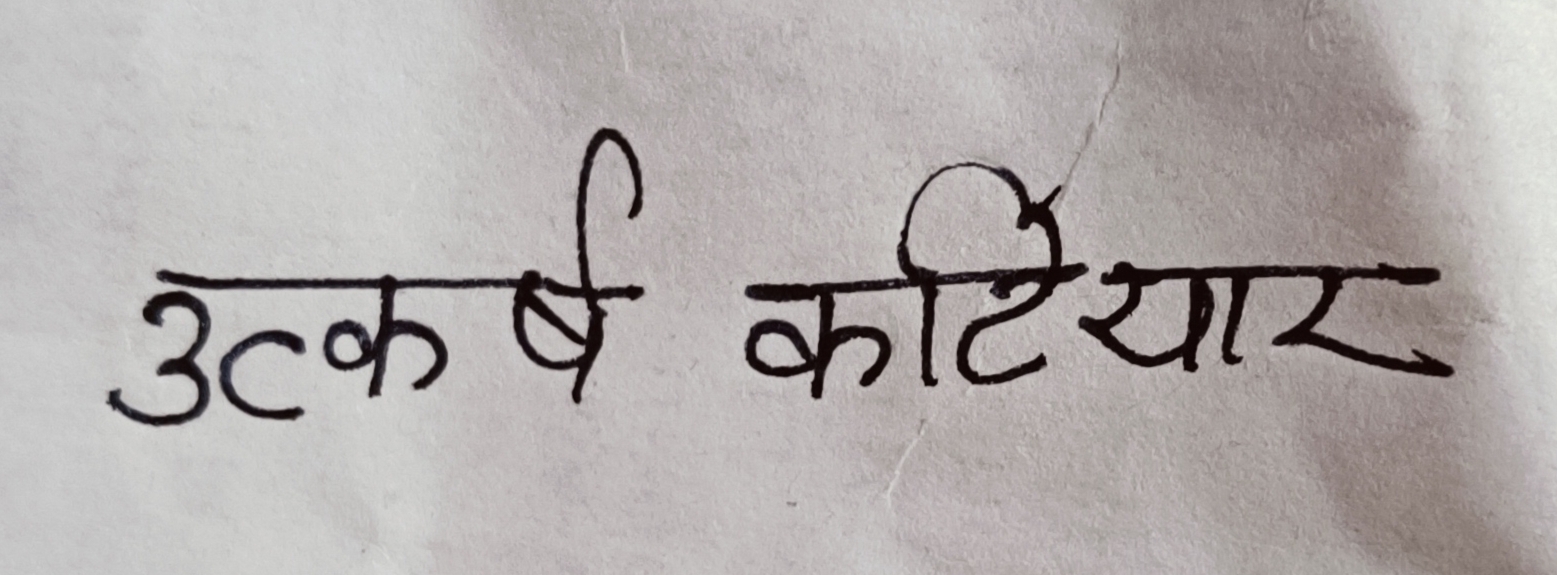 उत्कर्ष कटियार